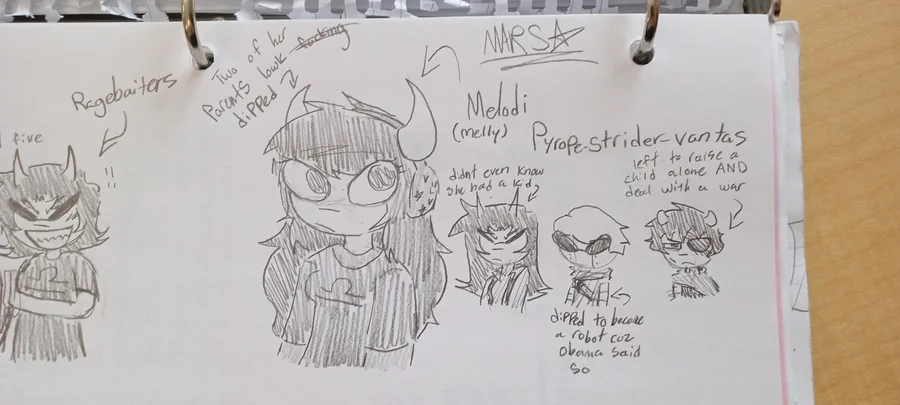 five
Ragebaiters
!!
Two of her
Parents lowk fucking
dipped
MARS
Melodi
(melly)
Pyrope-strider-vantas
didnt even know
she had a kid
left to raise a
child alone AND
deal with a war
dipped to become
a robot cuz
Obama said
so